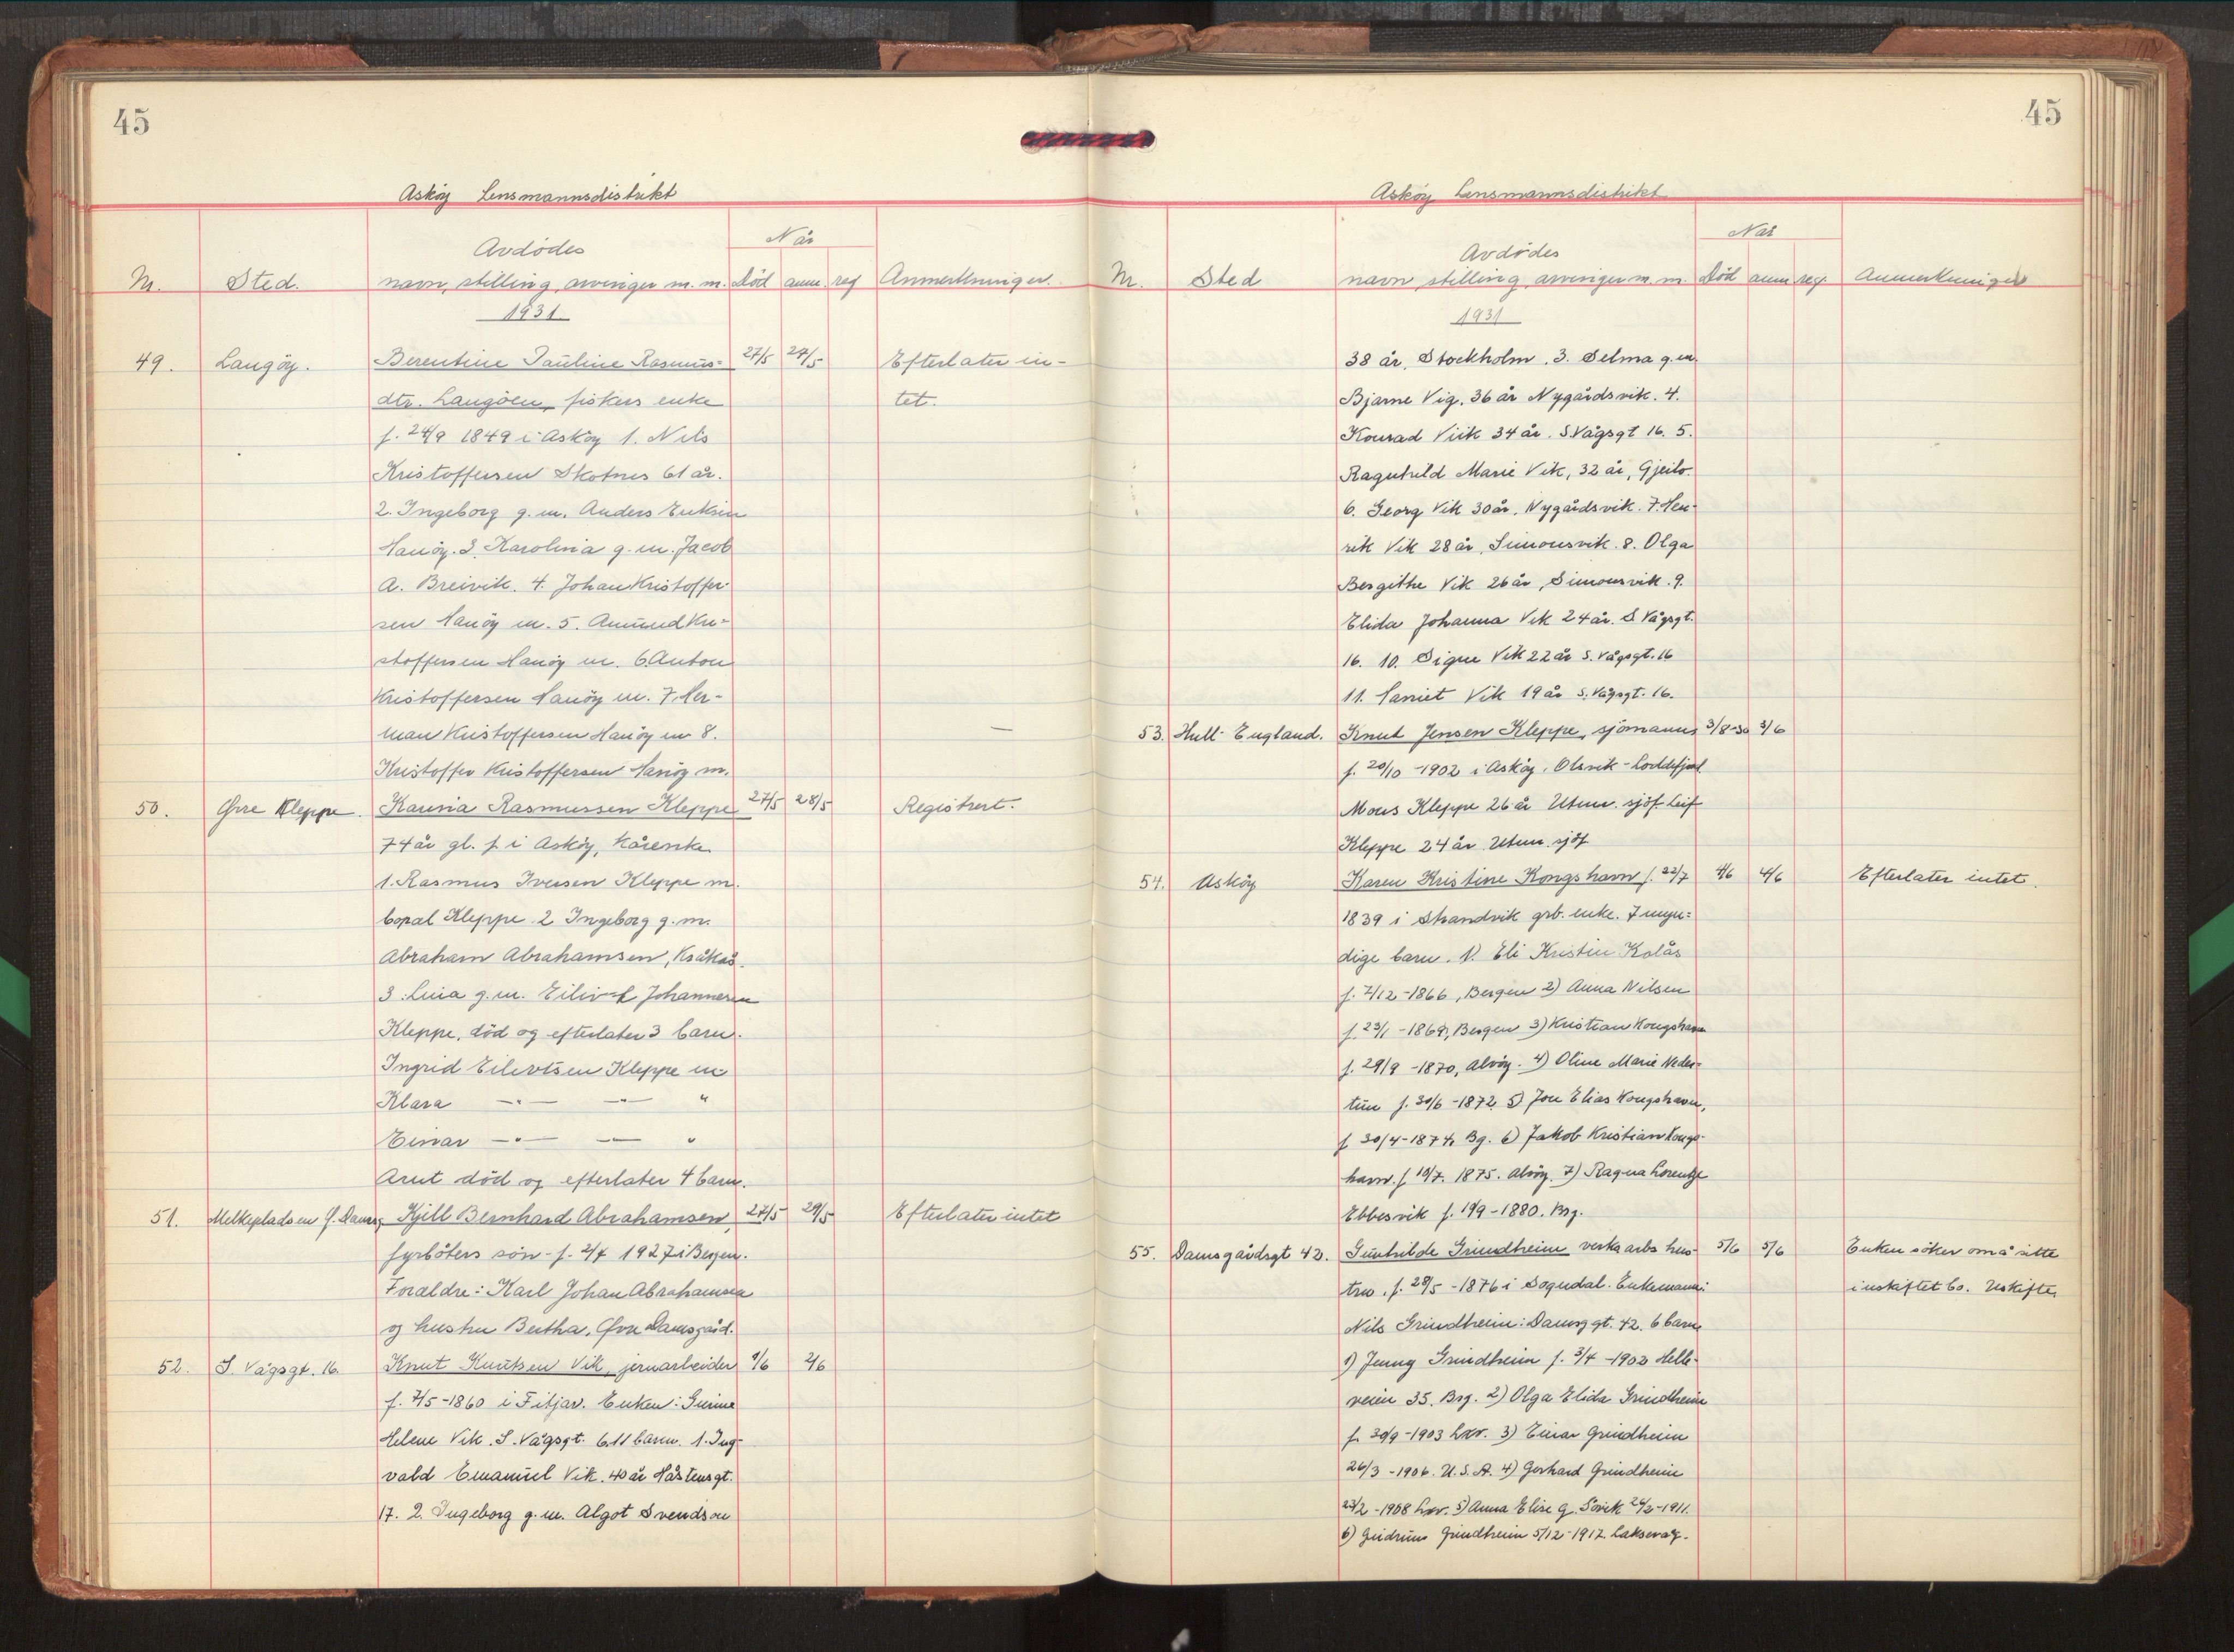 45
Askøy Lensmannsdistrikt
Når
Avdödes
Nr. Sted. navn, stilling, arvinger m. m. Död anm. reg Anmerkninger.
1931
49. Langöy. Berentine Pauline Rasmus- 27/5 27/5 Efterlater in-
dtr. Langöen, fiskers enke tet.
f. 24/9 1849 i Asköy 1. Nils
Kristoffersen Skotnes 61 år.
2. Ingeborg g. m. Anders Eriksen
Hanöy. 3. Karolina g. m. Jacob
A. Breivik. 4. Johan Kristoffer-
sen Hanöy m. 5. Amund Kri-
stoffersen Hanöy m. 6. Anton
Kristoffersen Hanöy m. 7. Her-
man Kristoffersen Hanöy m 8.
Kristoffer Kristoffersen Hanöy m.
50. Øvre Kleppe. Karina Rasmussen Kleppe 27/5 28/5 Registrert.
74 år gl. f. i Asköy, Kårenke
1. Rasmus Iversen Kleppe m.
Kleppe 2 Ingeborg g. m.
Abraham Abrahamsen, Kråkås.
3. Lina g. m. Eilivf Johannesen
Kleppe, död og efterlater 3 barn.
Ingrid Eilertsen Kleppe m
Klara —"— —"— "
Einar —"— — "
Arnt död og efterlater 4 barn.
51. Melkepladsen Ø. Damsg. Kjell Bernhard Abrahamsen, 27/5 29/5 Efterlater intet
fyrböters sön - f. 2/7 1927 i Bergen.
Foreldre: Karl Johan Abrahamsen
og hustru Bertha, Øvre Damsgård.
52. S. Vågsgt. 16. Knut Knutsen Vik, jernarbeider 1/6 2/6
f. 7/5-1860 i Fitjar. Enken: Gurine
Helene Vik. S. Vågsgt. 6. 11 barn. 1. Ing-
vald Emanuel Vik. 40 år Håstensgt.
17. 2. Ingeborg g. m. Algot Svendsen
45
Askøy Lensmannsdistrikt
Når
Avdödes
Nr. Sted navn, stilling, arvinger m. m. Död anm reg. Anmerkninger
1931
38 år, Stockholm. 3. Selma g. m.
Bjarne Vig. 36 år Nygårdsvik. 4.
Konrad Viik 34 år. S. Vågsgt 16. 5.
Ragnhild Marie Vik, 32 år, Gjeilo.
6. Georg Vik 30 år, Nygårdsvik. 7. Hen-
rik Vik 28 år, Simonsvik. 8. Olga
Bergithe Vik 26 år, Simonsvik. 9.
Elida Johanna Vik 24 år. S. Vågsgt.
16. 10. Signe Vik 22 år S. Vågsgt. 16
11. Harriet Vik 19 år S. Vågsgt. 16.
53. Hull England. Knut Jensen Kleppe, sjömann 3/8-30 3/6
f. 20/10 -1902 i Asköy. Olsvik - Loddefjord
Mons Kleppe 26 år Utenr. sjöf. Leif
Kleppe 24 år Utenr. sjöf
54. Asköy Karen Kristine Kongshavn f. 22/7 4/6 4/6 Efterlater intet.
1839 i Strandvik grb. enke. 7 myn-
dige barn. 1. Eli Kristin Kolås
f. 7/12-1866, Bergen 2) Anna Nilsen
f. 23/1 -1869, Bergen 3) Kristian Kongshavn
f. 29/9 -1870, Alvöy. 4) Oline Marie Neder-
tun f. 30/6 -1872. 5) Jon Elias Kongshavn,
f. 30/4-1874, Bg. 6) Jakob Kristian Kongs-
havn. f. 10/7. 1875. Alvöy. 7) Ragna Lorentze
Ebbesvik f. 19/9-1880. Brg.
55. Damsgårdsgt 42. Gunhilde Grindheim verksarbs hus- 5/6 5/6 Enken söker om å sitte
tru. f. 28/5 -1876 i Sogndal. Enkemann: i uskiftet bo. Uskifte
Nils Grindheim: Damsg gt. 42. 6 barn
1) Jenny Grindheim f. 3/4 -1902 Helle-
veien 35. Brg. 2) Olga Elida Grindheim
f. 20/9 -1903 Lxv. 3) Einar Grindheim
26/3 -1906. U. S. A. 4) Gerhard Grindheim
23/2 -1908 Lxv. 5) Anna Elise g. Sörvik 26/2-1911.
6) Gudrun Grindheim 5/12-1917. Laksevåg.